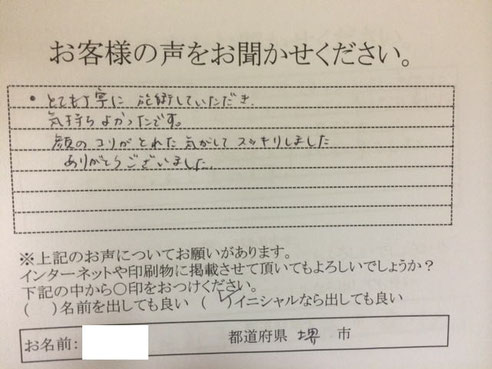 お客様の声をお聞かせください。
・とても丁寧に施術していただき、
気持ちよかったです。
顔のコリがとれた気がしてスッキリしました
ありがとうございました。
※上記のお声についてお願いがあります。
インターネットや印刷物に掲載させて頂いてもよろしいでしょうか?
下記の中から○印をおつけください。
(　)名前を出しても良い (✓)イニシャルなら出しても良い
お名前: 都道府県 堺 市